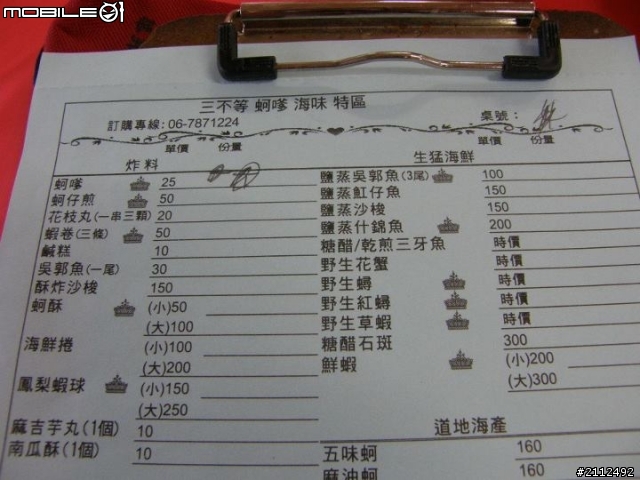 MOBILE01
三不等 蚵嗲 海味 特區
訂購專線: 06-7871224
桌號:
單價 份量
單價 份量
炸 料
蚵嗲 25
蚵仔煎 50
花枝丸(一串三顆) 20
蝦卷(三條) 50
鹹糕 10
吳郭魚(一尾) 30
酥炸沙梭 150
蚵酥 (小)50
(大)100
海鮮捲 (小)100
(大)200
鳳梨蝦球 (小)150
(大)250
麻吉芋丸(1個) 10
南瓜酥(1個) 10
生猛海鮮
鹽蒸吳郭魚(3尾) 100
鹽蒸魟仔魚 150
鹽蒸沙梭 150
鹽蒸什錦魚 200
糖醋/乾煎三牙魚 時價
野生花蟹 時價
野生蟳 時價
野生紅蟳 時價
野生草蝦 時價
糖醋石斑 300
鮮蝦 (小)200
(大)300
道地海產
五味蚵 160
麻油蚵 160
#2112492